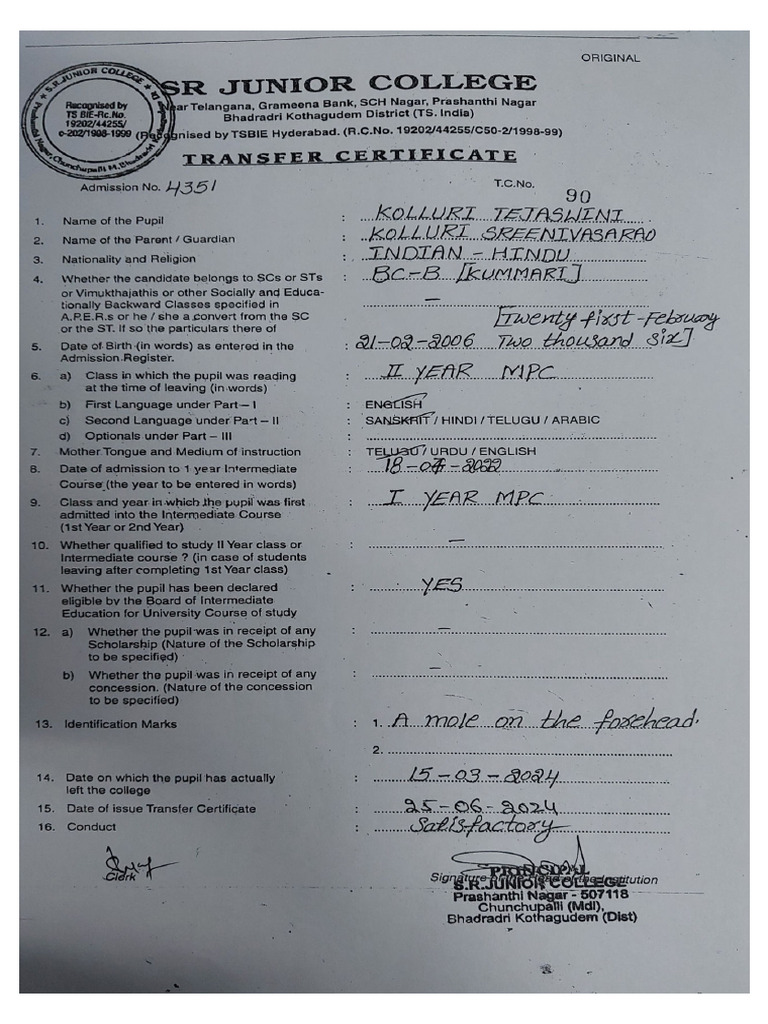 ORIGINAL
SR JUNIOR COLLEGE
S.R.JUNIOR COLLEGE
Recognised by
TS BIE-Rc.No.
19202/44255/
c-202/1998-1999
Near Telangana, Grameena Bank, SCH Nagar, Prashanthi Nagar
Bhadradri Kothagudem District (TS. India)
(Recognised by TSBIE Hyderabad. (R.C.No. 19202/44255/C50-2/1998-99)
TRANSFER CERTIFICATE
Admission No. 4351 T.C.No. 90
1. Name of the Pupil : KOLLURI TEJASWINI
2. Name of the Parent / Guardian : KOLLURI SREENIVASARAO
3. Nationality and Religion : INDIAN - HINDU
4. Whether the candidate belongs to SCs or STs : BC-B [KUMMARI]
or Vimukthajathis or other Socially and Educa-
tionally Backward Classes specified in –
A.P.E.R.s or he / she a convert from the SC
or the ST. If so the particulars there of [Twenty first-February
5. Date of Birth (in words) as entered in the : 21-02-2006 Two thousand six]
Admission Register.
6. a) Class in which the pupil was reading : II YEAR MPC
at the time of leaving (in words)
b) First Language under Part – I : ENGLISH
c) Second Language under Part – II : SANSKRIT / HINDI / TELUGU / ARABIC
d) Optionals under Part – III :
7. Mother Tongue and Medium of instruction : TELUGU / URDU / ENGLISH
8. Date of admission to 1 year Intermediate : 18-07-2022
Course (the year to be entered in words)
9. Class and year in which the pupil was first : I YEAR MPC
admitted into the Intermediate Course
(1st Year or 2nd Year)
10. Whether qualified to study II Year class or : –
Intermediate course ? (in case of students
leaving after completing 1st Year class)
11. Whether the pupil has been declared : YES
eligible by the Board of Intermediate
Education for University Course of study
12. a) Whether the pupil was in receipt of any : –
Scholarship (Nature of the Scholarship
to be specified)
b) Whether the pupil was in receipt of any : –
concession. (Nature of the concession
to be specified)
13. Identification Marks : 1. A mole on the forehead.
2.
14. Date on which the pupil has actually : 15-03-2024
left the college
15. Date of issue Transfer Certificate : 25-06-2024
16. Conduct : Satisfactory
Clerk
Signature of the Head of the Institution
PRINCIPAL
S.R.JUNIOR COLLEGE
Prashanthi Nagar - 507118
Chunchupalli (Mdl),
Bhadradri Kothagudem (Dist)